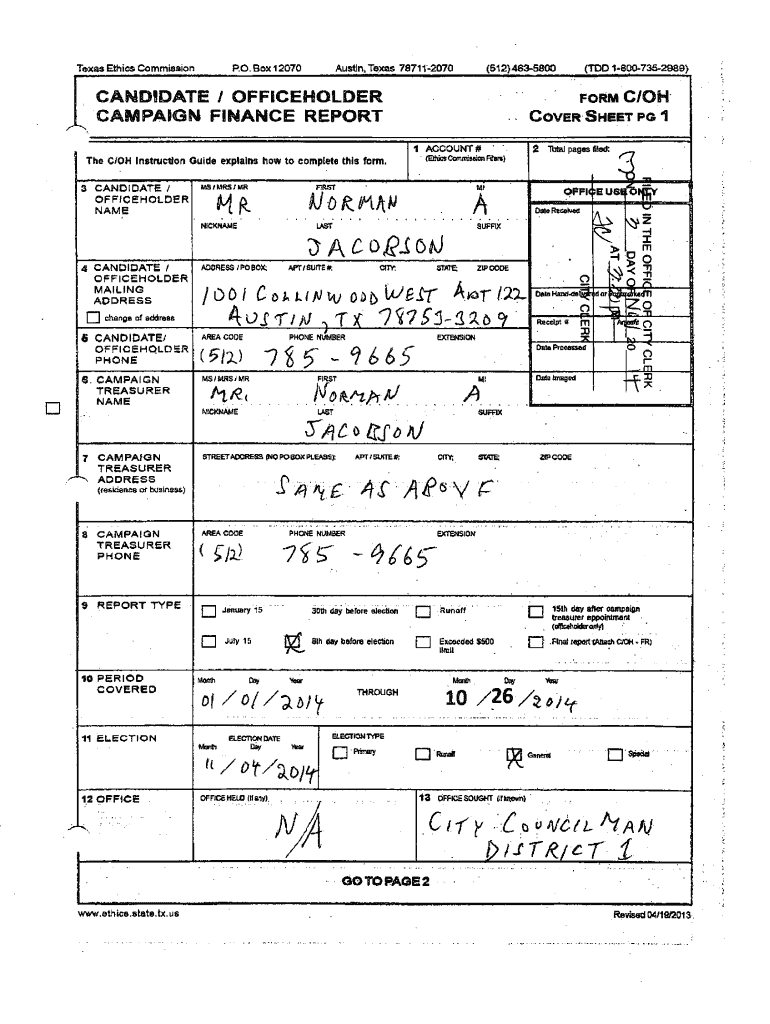 Texas Ethics Commission P.O. Box 12070 Austin, Texas 78711-2070 (512) 463-5800 (TDD 1-800-735-2989)
CANDIDATE / OFFICEHOLDER FORM C/OH
CAMPAIGN FINANCE REPORT COVER SHEET PG 1
The C/OH Instruction Guide explains how to complete this form.
1 ACCOUNT # (Ethics Commission Filers)
2 Total pages filed:
3
3 CANDIDATE / OFFICEHOLDER NAME
MS / MRS / MR FIRST MI
MR NORMAN A
NICKNAME LAST SUFFIX
JACOBSON
OFFICE USE ONLY
Date Received
FILED IN THE OFFICE OF CITY CLERK
DAY OF 20
AT
CITY CLERK
Date Hand-delivered or Postmarked
Receipt # Amount
Date Processed
Date Imaged
4 CANDIDATE / OFFICEHOLDER MAILING ADDRESS
change of address
ADDRESS / PO BOX; APT / SUITE #; CITY; STATE; ZIP CODE
1001 COLLINWOOD WEST APT 122
AUSTIN, TX 78753-3209
5 CANDIDATE/ OFFICEHOLDER PHONE
AREA CODE PHONE NUMBER EXTENSION
(512) 785-9665
6 CAMPAIGN TREASURER NAME
MS / MRS / MR FIRST MI
MR. NORMAN A
NICKNAME LAST SUFFIX
JACOBSON
7 CAMPAIGN TREASURER ADDRESS
(residence or business)
STREET ADDRESS (NO PO BOX PLEASE); APT / SUITE #; CITY; STATE; ZIP CODE
SAME AS ABOVE
8 CAMPAIGN TREASURER PHONE
AREA CODE PHONE NUMBER EXTENSION
(512) 785-9665
9 REPORT TYPE
January 15 30th day before election Runoff 15th day after campaign treasurer appointment (officeholder only)
July 15 X 8th day before election Exceeded $500 limit Final report (Attach C/OH - FR)
10 PERIOD COVERED
Month Day Year Month Day Year
01/01/2014 THROUGH 10/26/2014
11 ELECTION
ELECTION DATE ELECTION TYPE
Month Day Year
11/04/2014
Primary Runoff X General Special
12 OFFICE
OFFICE HELD (if any)
N/A
13 OFFICE SOUGHT (if known)
CITY COUNCILMAN
DISTRICT 1
GO TO PAGE 2
www.ethics.state.tx.us Revised 04/19/2013